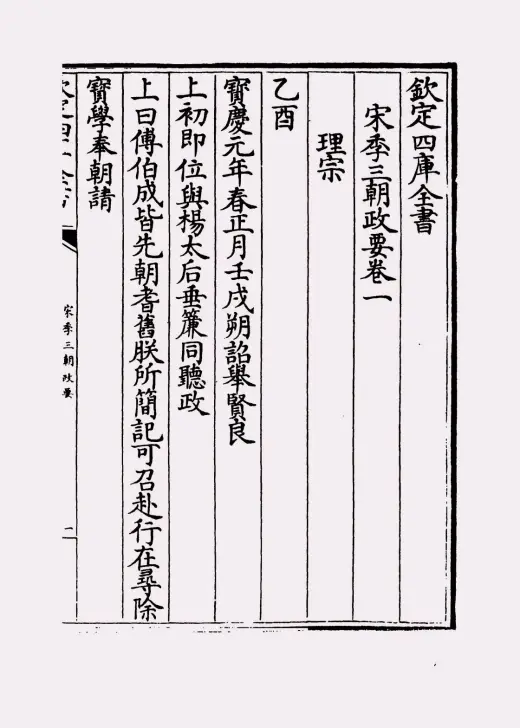 欽定四庫全書
宋季三朝政要卷一
理宗
乙酉
寳慶元年春正月壬戌朔詔舉賢良
上初即位與楊太后垂簾同聽政
上曰傅伯成皆先朝耆舊朕所簡記可召赴行在尋除
寳學奉朝請
欽定四庫全書
宋季三朝政要
二